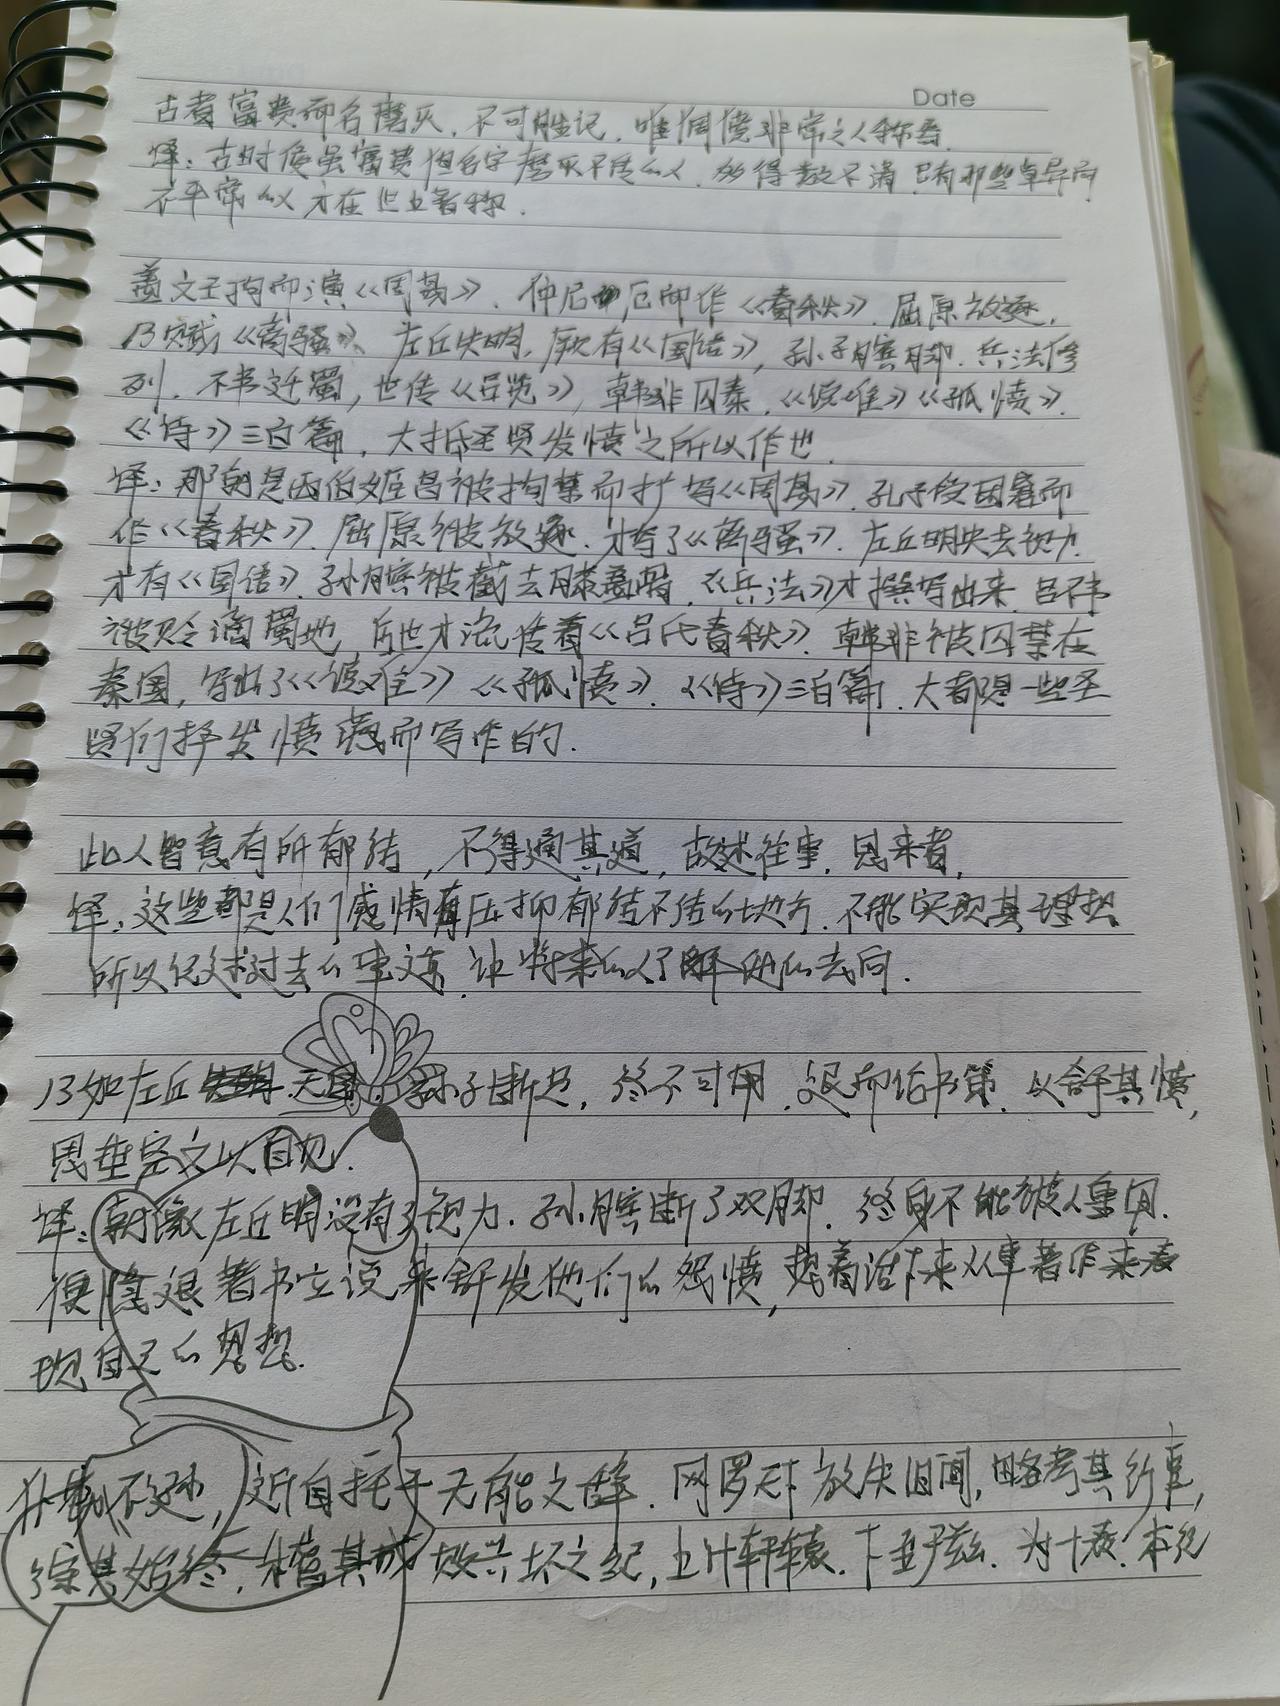 Date
古者富贵而名磨灭,不可胜记,唯倜傥非常之人称焉.
译:古时候虽富贵但名字磨灭不传的人,多得数不清,只有那些卓异而
不平常的人才在世上著称.
盖文王拘而演《周易》,仲尼厄而作《春秋》,屈原放逐,
乃赋《离骚》,左丘失明,厥有《国语》,孙子膑脚,兵法修
列,不韦迁蜀,世传《吕览》,韩非囚秦,《说难》《孤愤》,
《诗》三百篇,大抵圣贤发愤之所以作也.
译:那西伯姬昌被拘禁而扩写《周易》,孔子受困窘而
作《春秋》,屈原被放逐,才写了《离骚》,左丘明失去视力
才有《国语》,孙膑被截去膝盖骨,《兵法》才撰写出来,吕不韦
被贬谪蜀地,后世才流传着《吕氏春秋》,韩非被囚禁在
秦国,写出了《说难》《孤愤》,《诗》三百篇,大都是一些圣
贤们抒发愤慨而写作的.
此人皆意有所郁结,不得通其道,故述往事,思来者,
译:这些都是人们感情有压抑郁结不结的地方,不能实现其理想
所以记述过去的事,让将来的人了解他的去向.
乃如左丘无目,孙子断足,终不可用,退而论书策,以舒其愤,
思垂空文以自见.
译:就像左丘明没有了视力,孙膑断了双脚,终身不能被人重用,
便隐退著书立说来舒发他们的怨愤,想着活下来从事著作来表
现自己的思想.
仆窃不逊,近自托于无能之辞,网罗天下放失旧闻,略考其行事,
综其始终,稽其成败兴坏之纪,上计轩辕,下至于兹,为十表,本纪